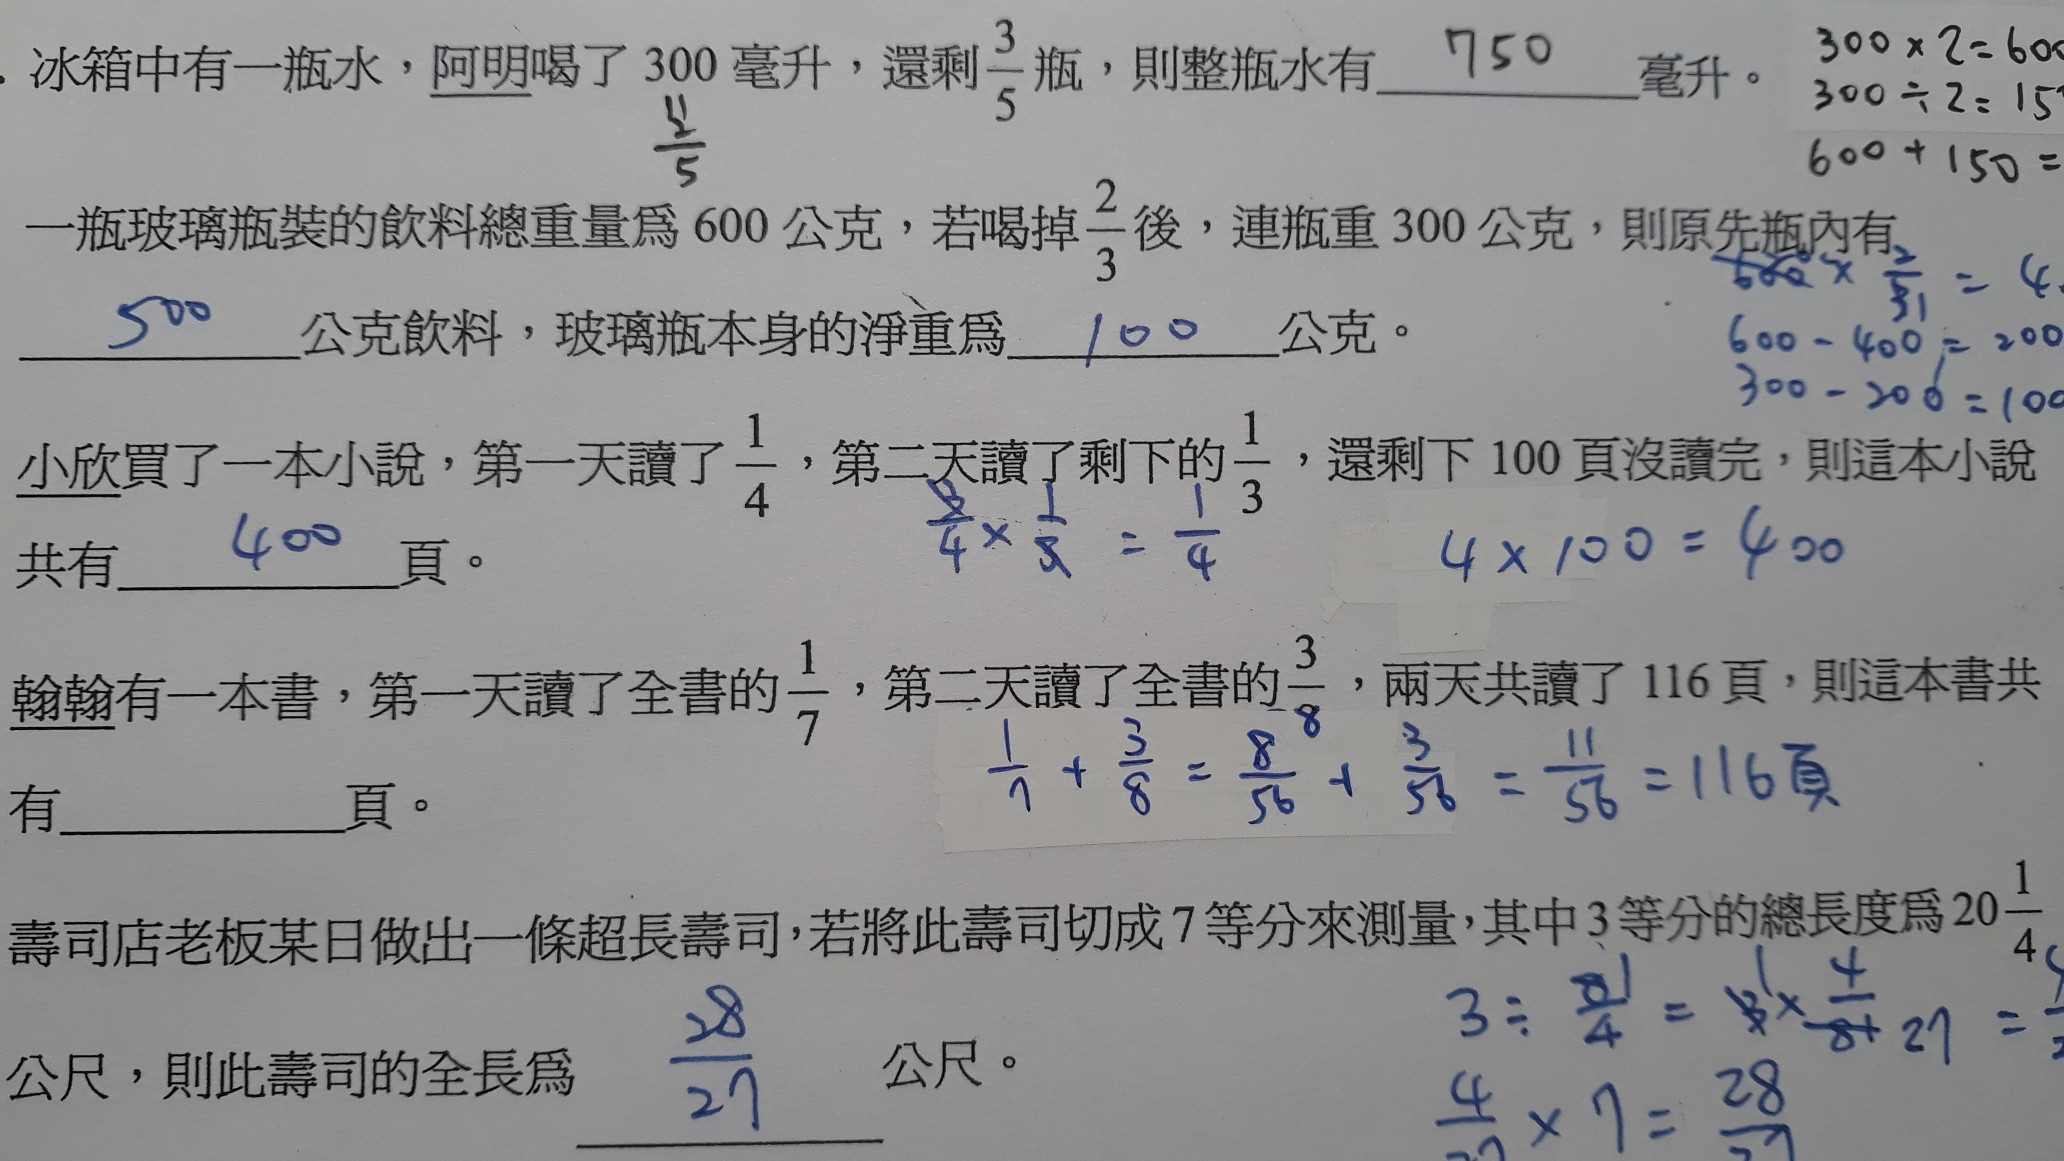 冰箱中有一瓶水，阿明喝了 300 毫升，還剩 3/5 瓶，則整瓶水有 750 毫升。
300 × 2 = 600
300 ÷ 2 = 15
2/5
600 + 150 =
一瓶玻璃瓶裝的飲料總重量為 600 公克，若喝掉 2/3 後，連瓶重 300 公克，則原先瓶內有
600 × 2/3 1 = 4
500 公克飲料，玻璃瓶本身的淨重為 100 公克。
600 - 400 = 200
300 - 200 = 100
小欣買了一本小說，第一天讀了 1/4，第二天讀了剩下的 1/3，還剩下 100 頁沒讀完，則這本小說
共有 400 頁。
3/4 × 1/3 = 1/4
4 × 100 = 400
翰翰有一本書，第一天讀了全書的 1/7，第二天讀了全書的 3/8，兩天共讀了 116 頁，則這本書共
有＿＿＿頁。
1/7 + 3/8 = 8/56 + 3/56 = 11/56 = 116頁
壽司店老板某日做出一條超長壽司，若將此壽司切成 7 等分來測量，其中 3 等分的總長度為 20 1/4
3 ÷ 81/4 = 3 1 × 4/81 27 =
公尺，則此壽司的全長為 28/27 公尺。
4/27 × 7 = 28/27